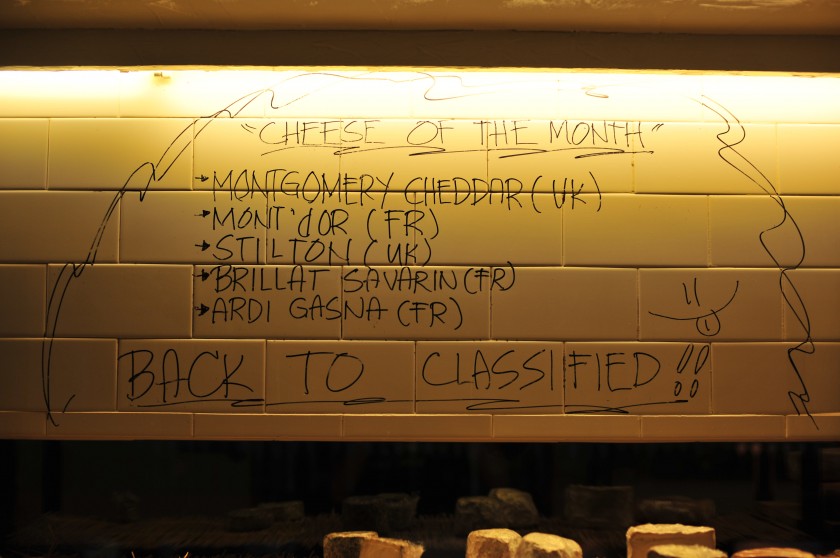 "CHEESE OF THE MONTH"
→MONTGOMERY CHEDDAR (UK)
→MONT'dOR (FR)
→STILTON (UK)
→BRILLAT SAVARIN (FR)
→ARDI GASNA (FR)
BACK TO CLASSIFIED !!